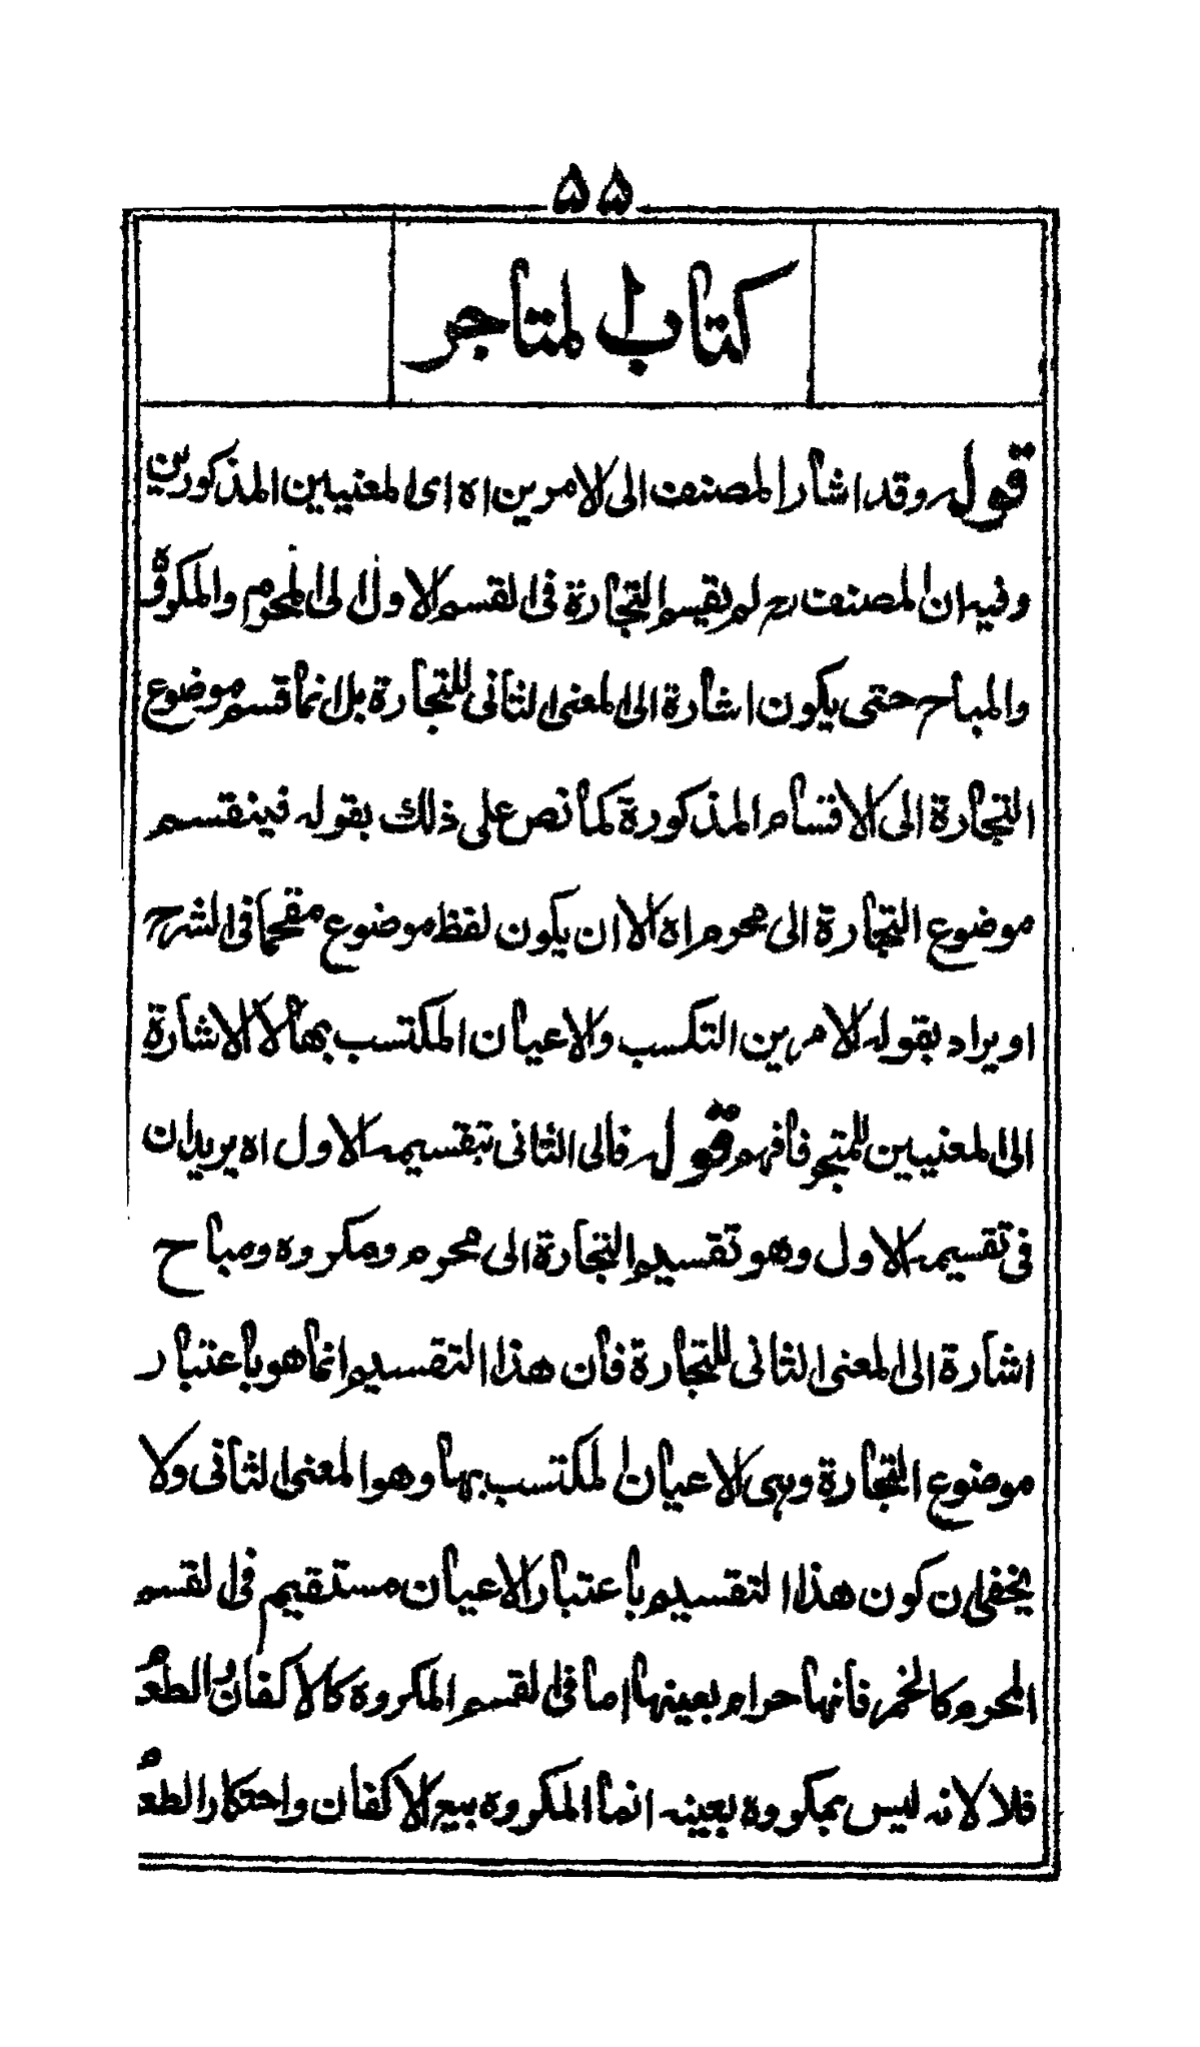 ۵۵
كتاب المتاجر
قوله وقد اشار المصنف الى الامرين اه اى المعنيين المذكورين
وفيه ان المصنف رح لم يقيسم التجارة فى القسم الاول الى المحرم والمكروه
والمباح حتى يكون اشارة الى المعنى الثانى للتجارة بل انما قسم موضوع
التجارة الى الاقسام المذكورة كما نص على ذلك بقوله فينقسم
موضوع التجارة الى محرم اه الا ان يكون لفظ موضوع مقحما فى الشرح
او يراد بقوله الامرين التكسب والاعيان المكتسب بها لا الاشارة
الى المعنيين للمتجر فافهم قوله فالى الثانى تبقسيمه الاول اه يريد ان
فى تقسيمه الاول وهو تقسيم التجارة الى محرم ومكروه ومباح
اشارة الى المعنى الثانى للتجارة فان هذا التقسيم انما هو باعتبار
موضوع التجارة وهى الاعيان المكتسب بها وهو المعنى الثانى ولا
يخفى ان كون هذا التقسيم باعتبار الاعيان مستقيم فى القسم
المحرم كالخمر فانها حرام بعينها اما فى القسم المكروه كالاكفان والطعم
فلا لانه ليس بمكروه بعينه انما المكروه بيع الاكفان واحتكار الطعم